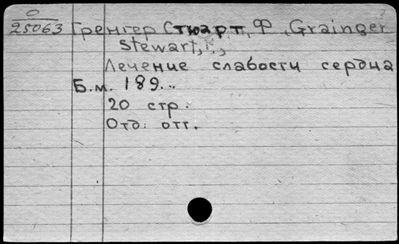 25063 Гренгер Стюарт, Ф., Grainger
Stewart, F.,
Лечение слабости сердца
Б.м. 189..
20 стр.
Отд. отт.